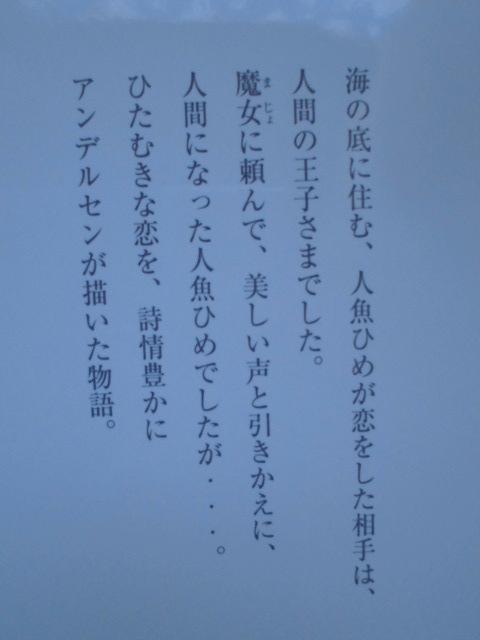 海の底に住む、人魚ひめが恋をした相手は、
人間の王子さまでした。
魔女に頼んで、美しい声と引きかえに、
まじょ
人間になった人魚ひめでしたが・・・。
ひたむきな恋を、詩情豊かに
アンデルセンが描いた物語。